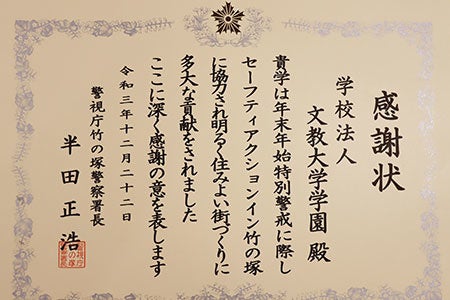 感謝状
学校法人
文教大学学園 殿
貴学は年末年始特別警戒に際し
セーフティアクションイン竹の塚
に協力され明るく住みよい街づくりに
多大な貢献をされました
ここに深く感謝の意を表します
令和三年十二月二十二日
警視庁竹の塚警察署長
半田正浩